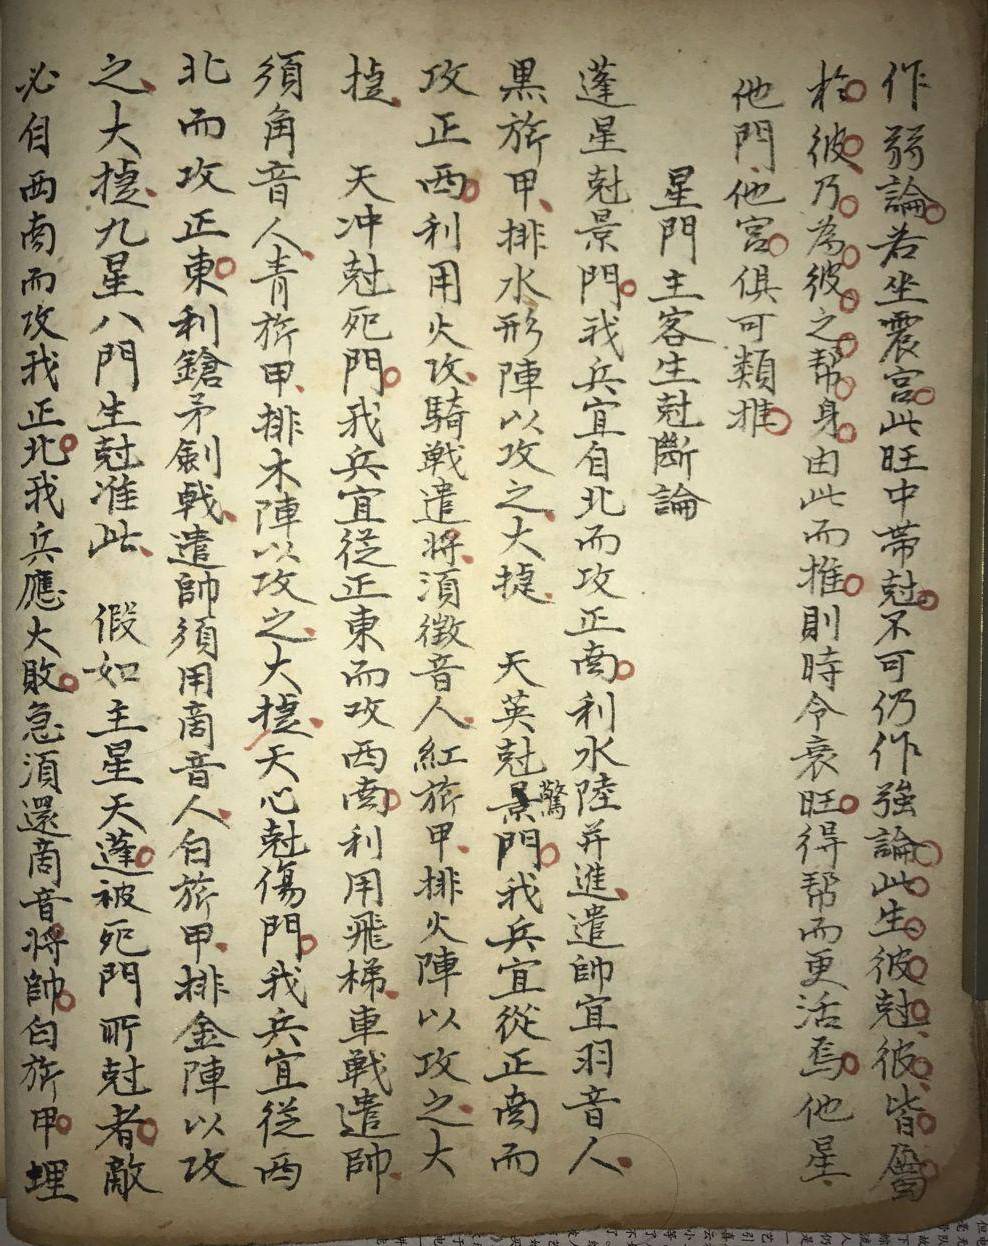 作弱論若坐震宮此旺中帶尅不可仍作強論此生彼尅彼皆屬
於彼乃為彼之幇身由此而推則時令衰旺得幇而更活焉他星
他門他宮俱可類推
星門主客生尅斷論
蓬星尅景門我兵宜自北而攻正南利水陸并進遣帥宜羽音人
黑旂甲排水形陣以攻之大捷 天英尅驚門我兵宜從正南而
攻正西利用火攻騎戰遣將須徵音人紅旂甲排火陣以攻之大
捷 天冲尅死門我兵宜從正東而攻西南利用飛梯車戰遣帥
須角音人青旂甲排木陣以攻之大捷天心尅傷門我兵宜從西
北而攻正東利鎗矛劍戟遣帥須用商音人白旂甲排金陣以攻
之大捷九星八門生尅准此 假如主星天蓬被死門所尅者敵
必自西南而攻我正北我兵應大敗急須還商音將帥白旂甲埋